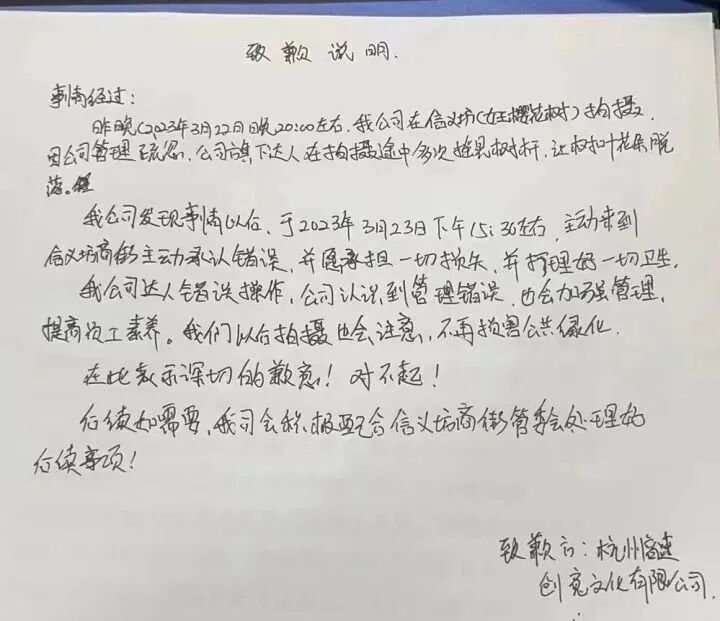 致歉说明.
事情经过:
昨晚(2023年3月22日晚20:00左右,我公司在信义坊(女王樱花树)拍摄,
因公司管理疏忽,公司旗下达人在拍摄途中多次摇晃树杆,让树叶花朵脱
落。
我公司发现事情以后,于2023年3月23日下午15:30左右,主动来到
信义坊商街主动承认错误,并愿承担一切损失,并打理好一切卫生.
我公司达人错误操作,公司认识到管理错误,也会加强管理,
提高员工素养。我们以后拍摄也会注意,不再损害公共绿化.
在此表示深切的歉意!对不起!
后续如需要,我司会积极配合信义坊商街管委会处理好
后续事项!
致歉方:杭州
创意文化有限公司.